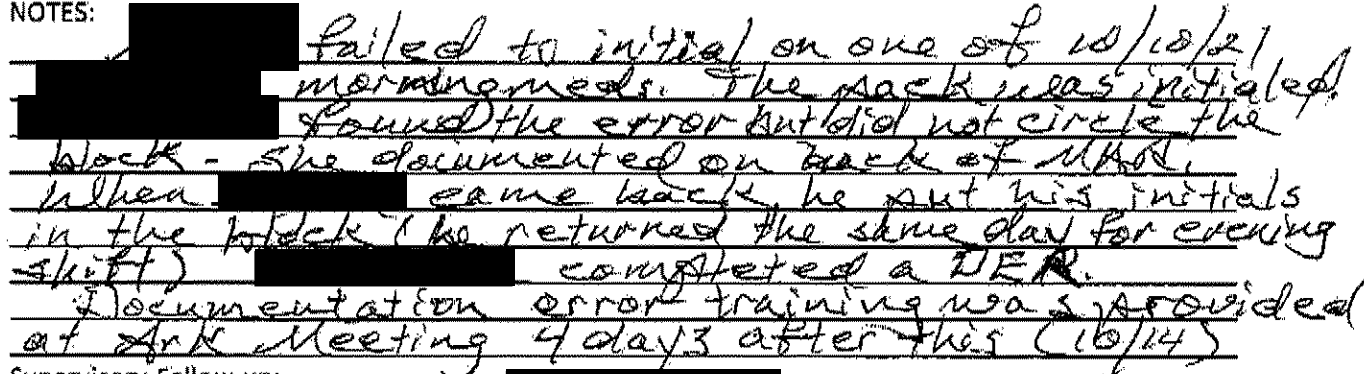 NOTES:
failed to initial on one of 10/10/21
morning meds. The pack was initialed.
found the error but did not circle the
block - She documented on back of MAR.
When came back, he put his initials
in the block (he returned the same day for evening
shift) completed a DER.
Documentation error training was provided
at Ark Meeting 4 days after this (10/14)
Supervisory Follow-up: